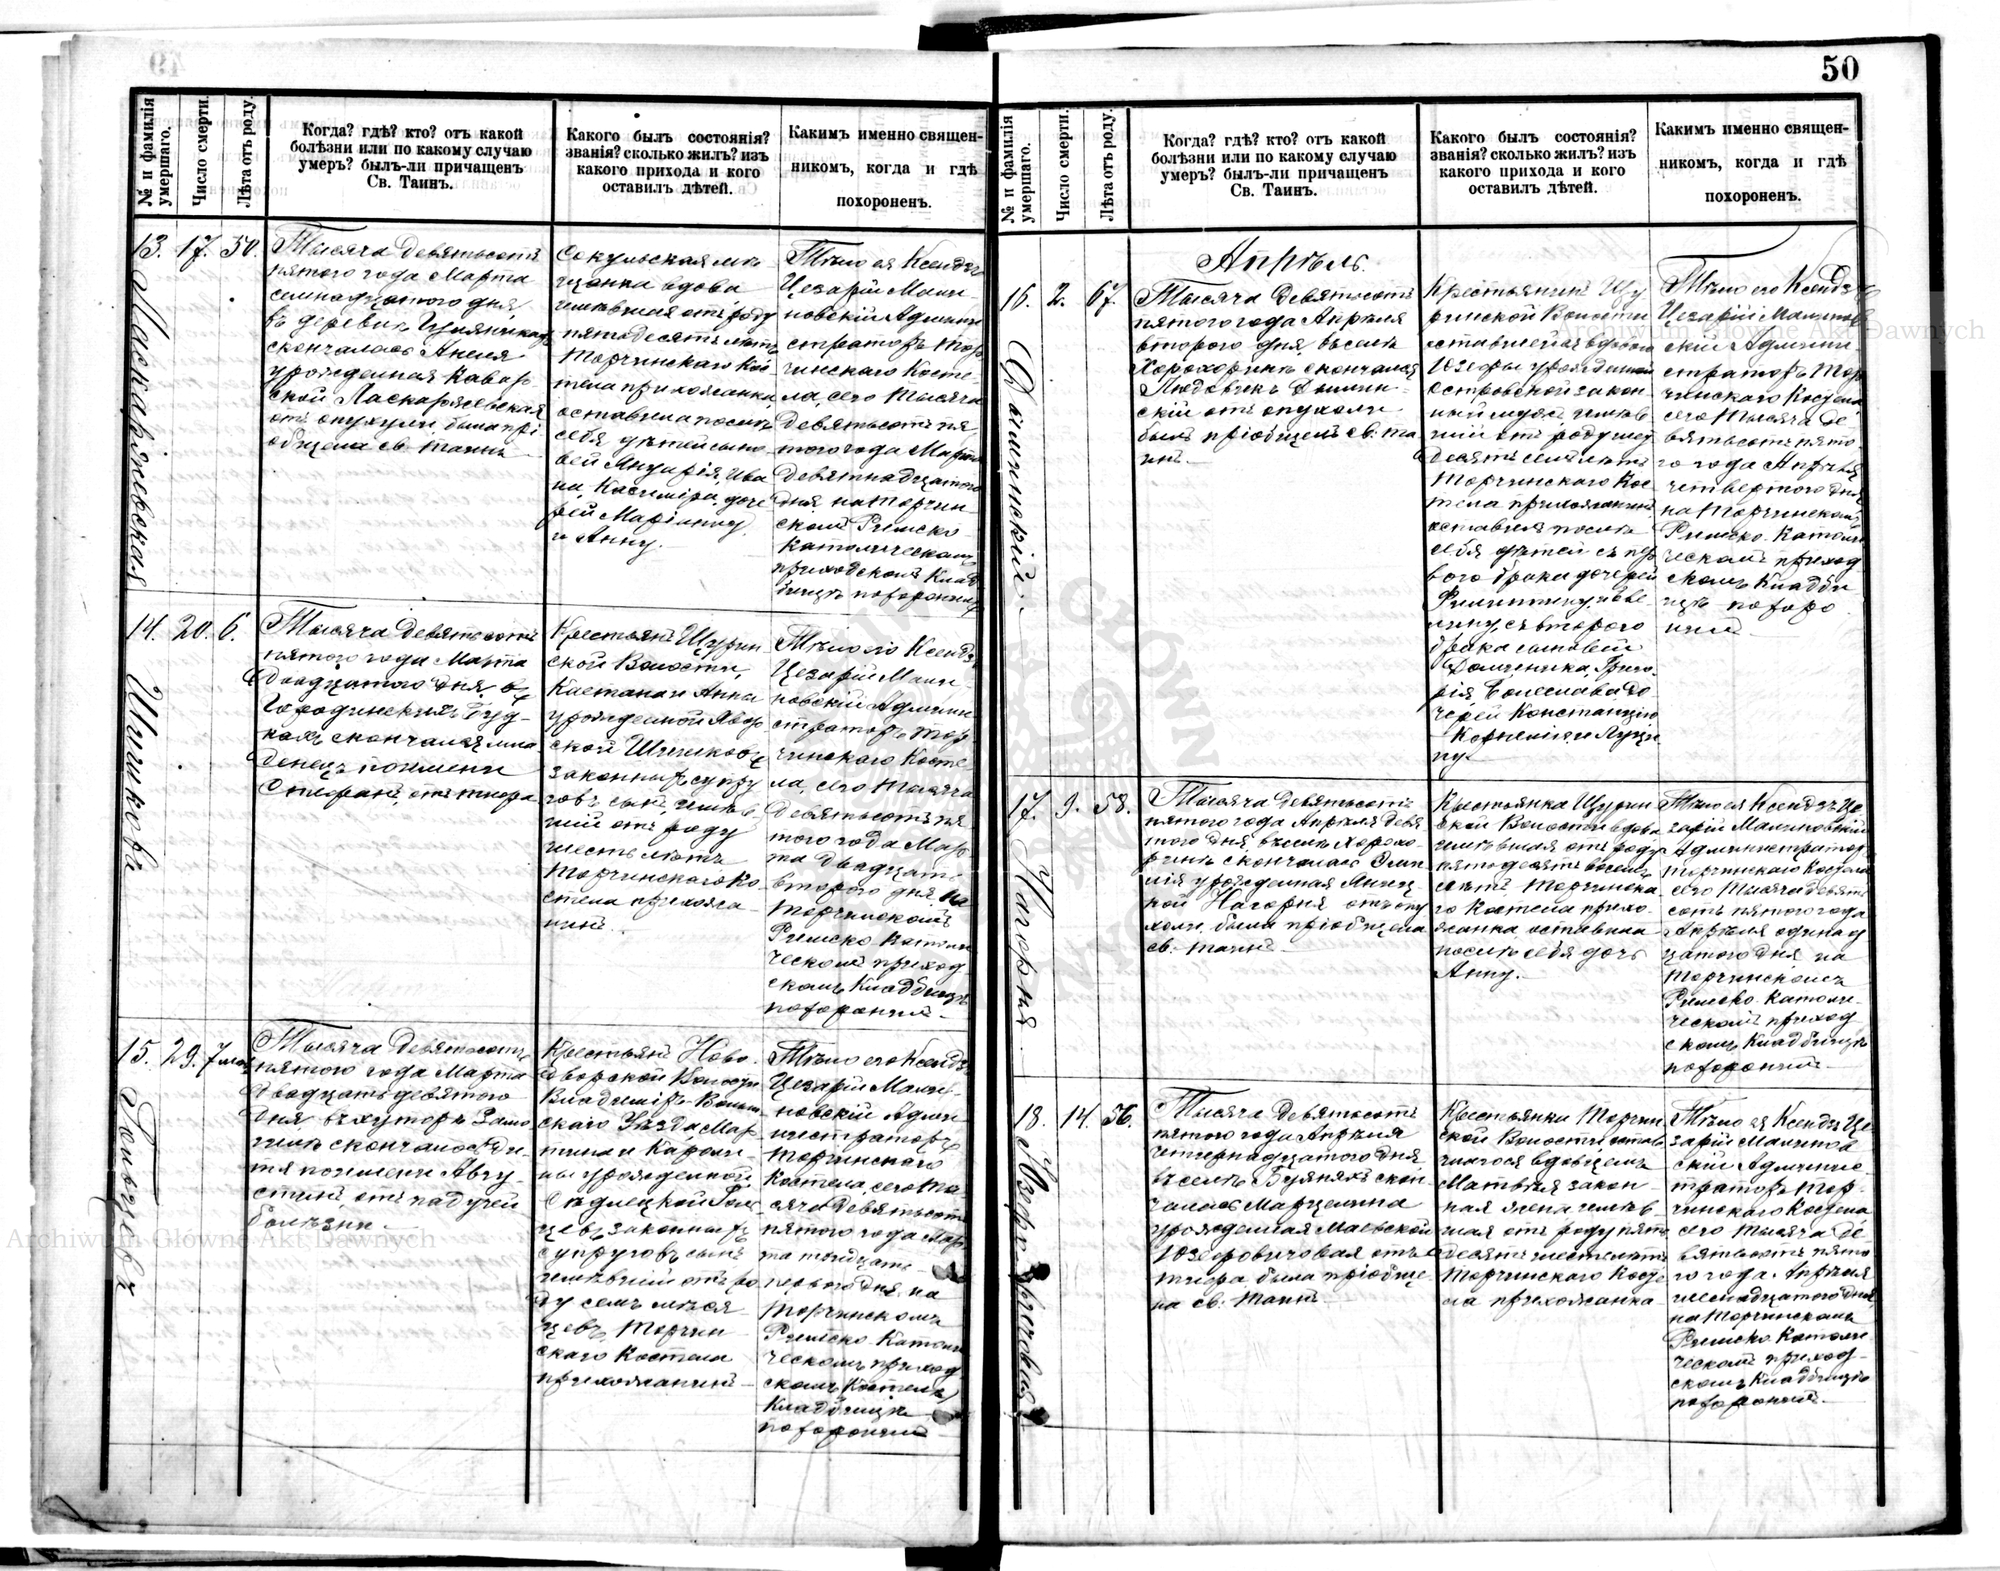 50
№ и фамилія умершаго.
Число смерти.
Лѣта отъ роду.
Когда? гдѣ? кто? отъ какой
болѣзни или по какому случаю
умеръ? былъ-ли причащенъ
Св. Таинъ.
Какого былъ состоянія?
званія? сколько жилъ? изъ
какого прихода и кого
оставилъ дѣтей.
Каким именно священ-
никомъ, когда и гдѣ
похороненъ.
13.
17.
50.
Тысяча девятьсотъ
пятого года Марта
семнадцатого дня,
въ деревнѣ
скончалась Анеля
урожденная Кавар-
ской Ласкаржевская
отъ опухули, была прі
общена св. таинъ
Сокульская мѣ
щанка вдова
имѣвшая отъ роду
пятьдесятъ лѣтъ
Торчинскаго Кос
тела прихожанка,
оставила послѣ
себя дѣтей сыно
вей Януарія, Ива
на, Казиміра, доче
рей Маріанну
и Анну.
Тѣло ея Ксендзъ
Цезарій Мали-
новскій Админи
страторъ Тор
чинскаго Косте-
ла, сего тысяча
девятьсотъ пя
того года Марта
девятнадцатого
дня на Торчин-
скомъ Римско
Католическомъ
приходскомъ Клад
бищѣ похоронилъ
14.
20.
6.
Шишковъ
Тысяча девятьсотъ
пятого года Марта
двадцатого дня, въ
Городинскихъ Буд-
кахъ скончался мла
денецъ по имени
Стефанъ, отъ тифа
Крестьянъ Щурин
ской Волости,
Констанъ и Анны
урожденной Явор
ской Шишковъ
законныхъ супру
говъ сынъ, имѣв
шій отъ роду
шесть лѣтъ
Торчинскаго Ко
стела прихожа-
нинъ
Тѣло его Ксендзъ
Цезарій Мали-
новскій Админи
страторъ Тор-
чинскаго Косте-
ла, сего тысяча
девятьсотъ пя-
того года Мар-
та двадцать
второго дня, на
Торчинскомъ
Римско Католи
ческомъ приход-
скомъ Кладбищѣ
похоронилъ
15.
29.
Гольцевъ
Тысяча девятьсотъ
пятого года Марта
двадцать девятого
дня въ хуторѣ
скончалось ди-
тя по имени Авгу-
стинъ, отъ падучей
болѣзни.
Крестьянъ Ново-
дворской Волости
Владиміръ-Волын
скаго Уѣзда, Мар
тина и Кароли-
ны урожденной
Сѣдлецкой Голь
цевъ, законныхъ
супруговъ сынъ
имѣвшій отъ ро
ду семь мѣся
цевъ, Торчин
скаго Костела
прихожанинъ
Тѣло его Ксендзъ
Цезарій Мали-
новскій Админи
страторъ
Торчинскаго
Костела, сего ты
сяча девятьсотъ
пятого года Мар
та тридцать
первого дня на
Торчинскомъ
Римско Католи
ческомъ приход
скомъ Костела
Кладбищѣ
похоронилъ
№ и фамилія умершаго.
Число смерти.
Лѣта отъ роду.
Когда? гдѣ? кто? отъ какой
болѣзни или по какому случаю
умеръ? былъ-ли причащенъ
Св. Таинъ.
Какого былъ состоянія?
званія? сколько жилъ? изъ
какого прихода и кого
оставилъ дѣтей.
Каким именно священ-
никомъ, когда и гдѣ
похороненъ.
Апрѣль.
16.
2.
67.
Тысяча девятьсотъ
пятого года Апрѣля
второго дня, въ селѣ
Хорохоринѣ скончался
Людовикъ
отъ опухоли
былъ пріобщенъ св. та
инъ
Крестьянинъ Щу
ринской Волости
оставшейся вдовою
Юзефы урожденной
Островской закон
ный мужъ, имѣв
шій отъ роду шесть
десятъ семь лѣтъ
Торчинскаго Кос
тела прихожанинъ
оставилъ послѣ
себя дѣтей съ пер
вого брака дочерей
съ второго
брака сыновей
Доминика, Григо
рія, Болеслава до-
черей Констанцію
Корнелію и Луци
ну
Тѣло его Ксендзъ
Цезарій Малинов
скій Админи-
страторъ Тор
чинскаго Костела
сего тысяча де
вятьсотъ пято
го года Апрѣля
четвертого дня
на Торчинскомъ
Римско Католи
ческомъ приход
скомъ Кладби
щѣ похоро
нилъ
17.
9.
58.
Нагорня
Тысяча девятьсотъ
пятого года Апрѣля девя
того дня, въ селѣ Хорохо-
ринѣ скончалась Эми
лія урожденная
Нагорня отъ опу
холи, была пріобщена
св. таинъ
Крестьянка Щурин
ской Волости вдова
имѣвшая отъ роду
пятьдесятъ восемь
лѣтъ Торчинска
го Костела прихо-
жанка оставила
послѣ себя дочь
Анну.
Тѣло ея Ксендзъ Це
зарій Малиновскій
Администраторъ
Торчинскаго Костела
сего тысяча девять
сотъ пятого года
Апрѣля одинад
цатого дня на
Торчинскомъ
Римско Католи-
ческомъ приход
скомъ Кладбищѣ
похоронилъ
18.
14.
56.
Юзефовичовая
Тысяча девятьсотъ
пятого года Апрѣля
четырнадцатого дня
въ селѣ Буянахъ скон
чалась Марцелина
урожденная Маевской
Юзефовичовая отъ
тифа была пріобще
на св. таинъ
Крестьянки Торчин
ской Волости, остав
шагося вдовцемъ
Матвѣя закон-
ная жена имѣв-
шая отъ роду пять
десятъ шесть лѣтъ
Торчинскаго Косте
ла прихожанка
Тѣло ея Ксендзъ Це
зарій Малинов
скій Админис
траторъ Тор-
чинскаго Костела
сего тысяча де
вятьсотъ пято
го года Апрѣля
шеснадцатого дня
на Торчинскомъ
Римско Католи
ческомъ приход-
скомъ Кладбищѣ
похоронилъ
Archiwum Główne Akt Dawnych
Archiwum Główne Akt Dawnych